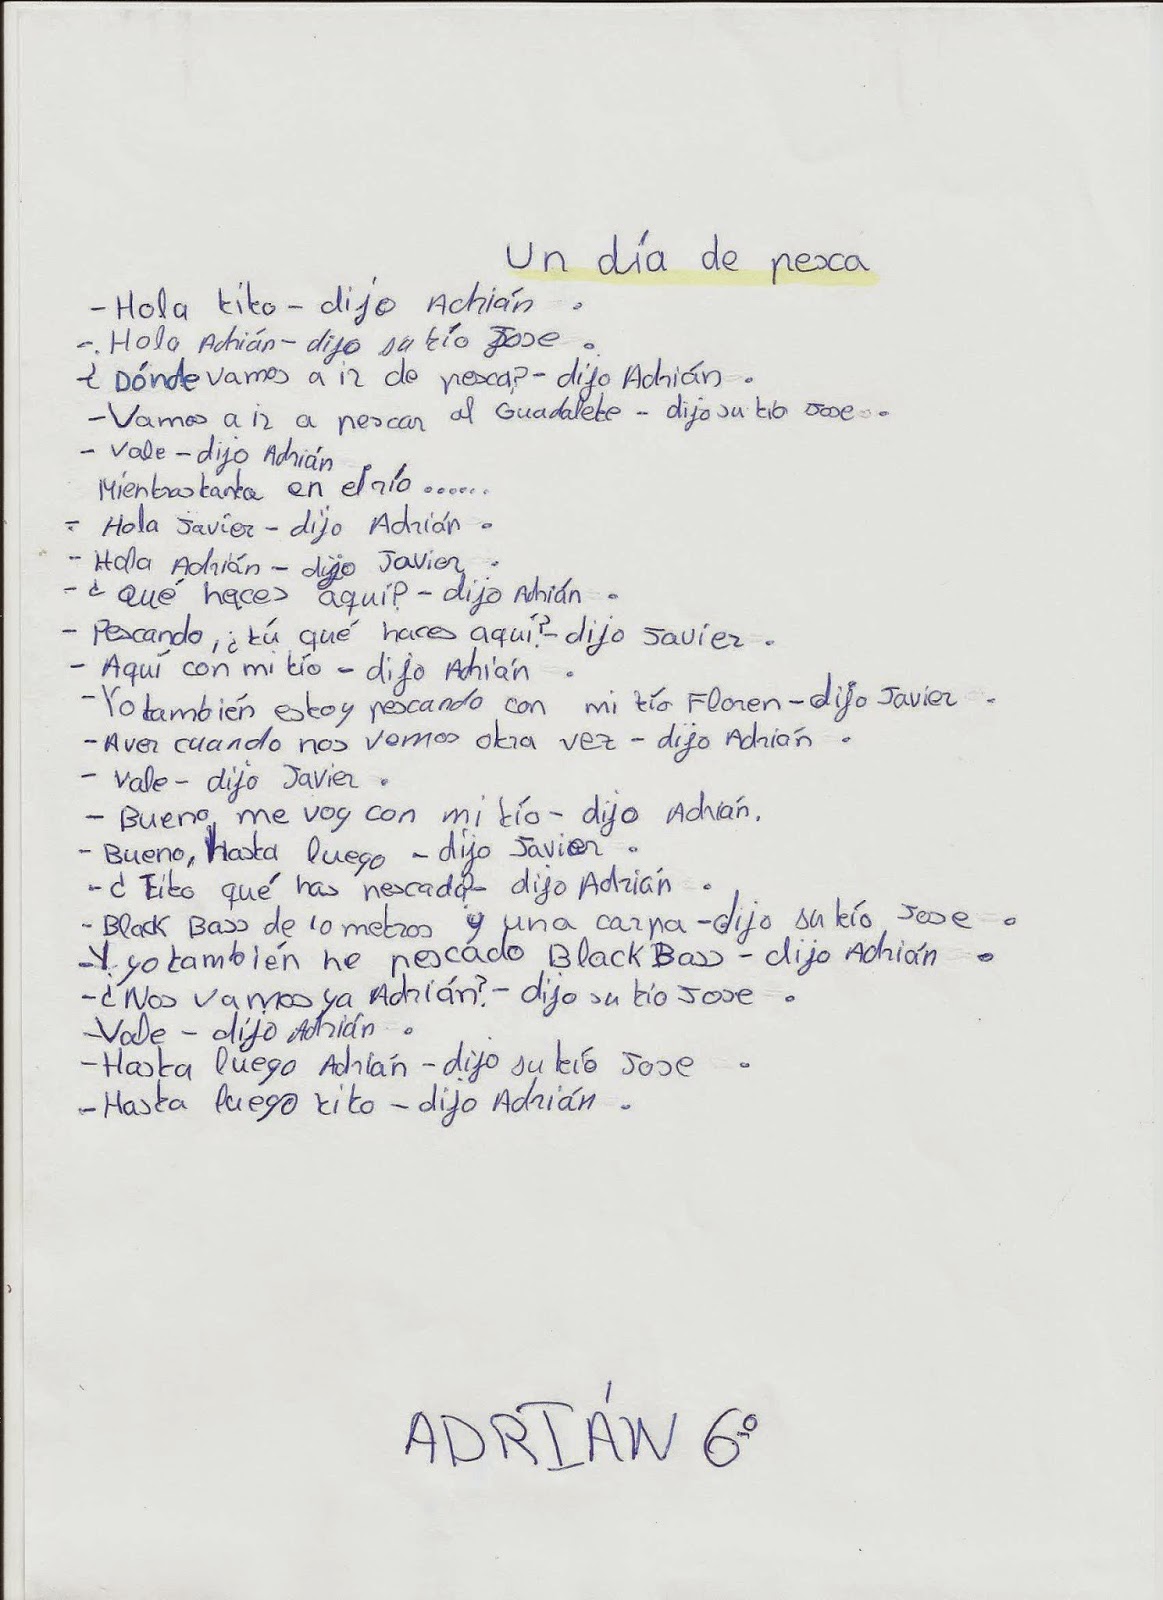 Un día de pesca
- Hola tito - dijo Adrián .
-. Hola Adrián - dijo su tío Jose .
¿ Dónde vamos a ir de pesca? - dijo Adrián .
- Vamos a ir a pescar al Guadalete - dijo su tío Jose .
- Vale - dijo Adrián
Mientrastanta en el río ......
- Hola Javier - dijo Adrián .
- Hola Adrián - dijo Javier .
- ¿ Qué haces aquí? - dijo Adrián .
- Pescando, ¿tú qué haces aquí? - dijo Javier .
- Aquí con mi tío - dijo Adrián .
- Yo también estoy pescando con mi tío Floren - dijo Javier .
- Aver cuando nos vemos otra vez - dijo Adrián .
- Vale - dijo Javier .
- Bueno, me voy con mi tío - dijo Adrián.
- Bueno, Hasta luego - dijo Javier .
- ¿ Tito qué has pescado? - dijo Adrián .
- Black Bass de 10 metros y una carpa - dijo su tío Jose .
- Y yo también he pescado Black Bass - dijo Adrián .
- ¿Nos vamos ya Adrián? - dijo su tío Jose .
- Vale - dijo Adrián .
- Hasta luego Adrián - dijo su tío Jose .
- Hasta luego tito - dijo Adrián .
ADRIÁN 6º